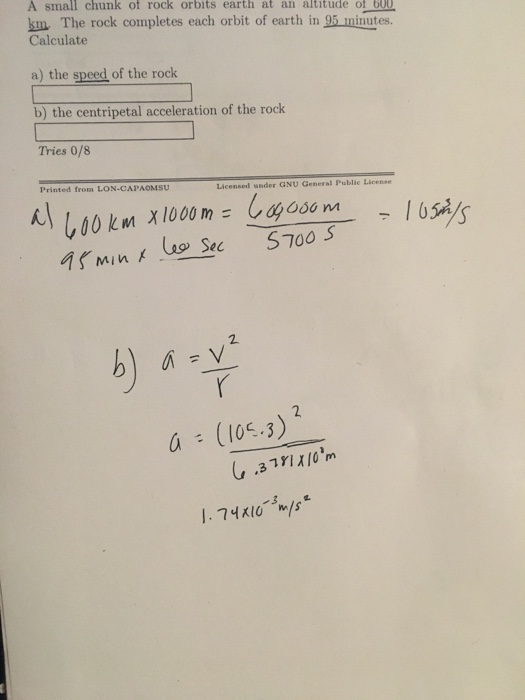 A small chunk of rock orbits earth at an altitude of 600
km. The rock completes each orbit of earth in 95 minutes.
Calculate
a) the speed of the rock
b) the centripetal acceleration of the rock
Tries 0/8
Printed from LON-CAPA@MSU Licensed under GNU General Public License
a) 600 km x 1000 m = 600,000 m = 105 m/s
95 min x 60 sec 5700 s
b) a = v²
r
a = (105.3)²
m
1.74x10⁻³ m/s²